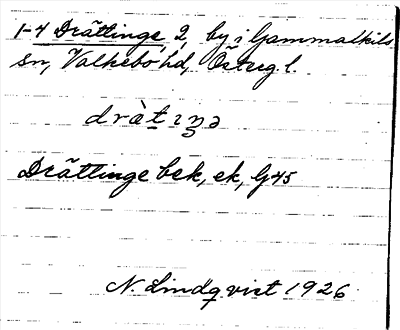 1-4 Drättinge 2, by i Gammalkils
sn, Valkebo hd, Östergl.
dràt ıŋə
Drättinge bek, ek, G45
N. Lindqvist 1926